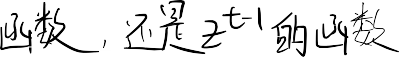 函数，还是z^{t-1}的函数